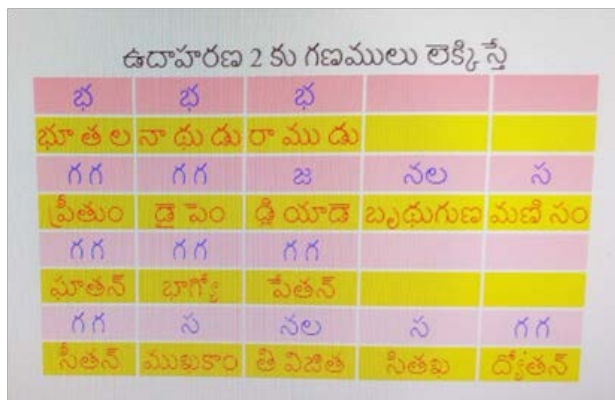 ఉదాహరణ 2 కు గణములు లెక్కిస్తే
భ భ భ
భూ త ల నా థు డు రా ము డు
గ గ గ గ జ నల స
ప్రీతుం డై పెం డ్లి యాడె బృథుగుణ మణి సం
గ గ గ గ గ గ
ఘాతన్ భాగ్యో పేతన్
గ గ స నల స గ గ
సీతన్ ముఖకాం తి విజిత సితఖ ద్యోతన్